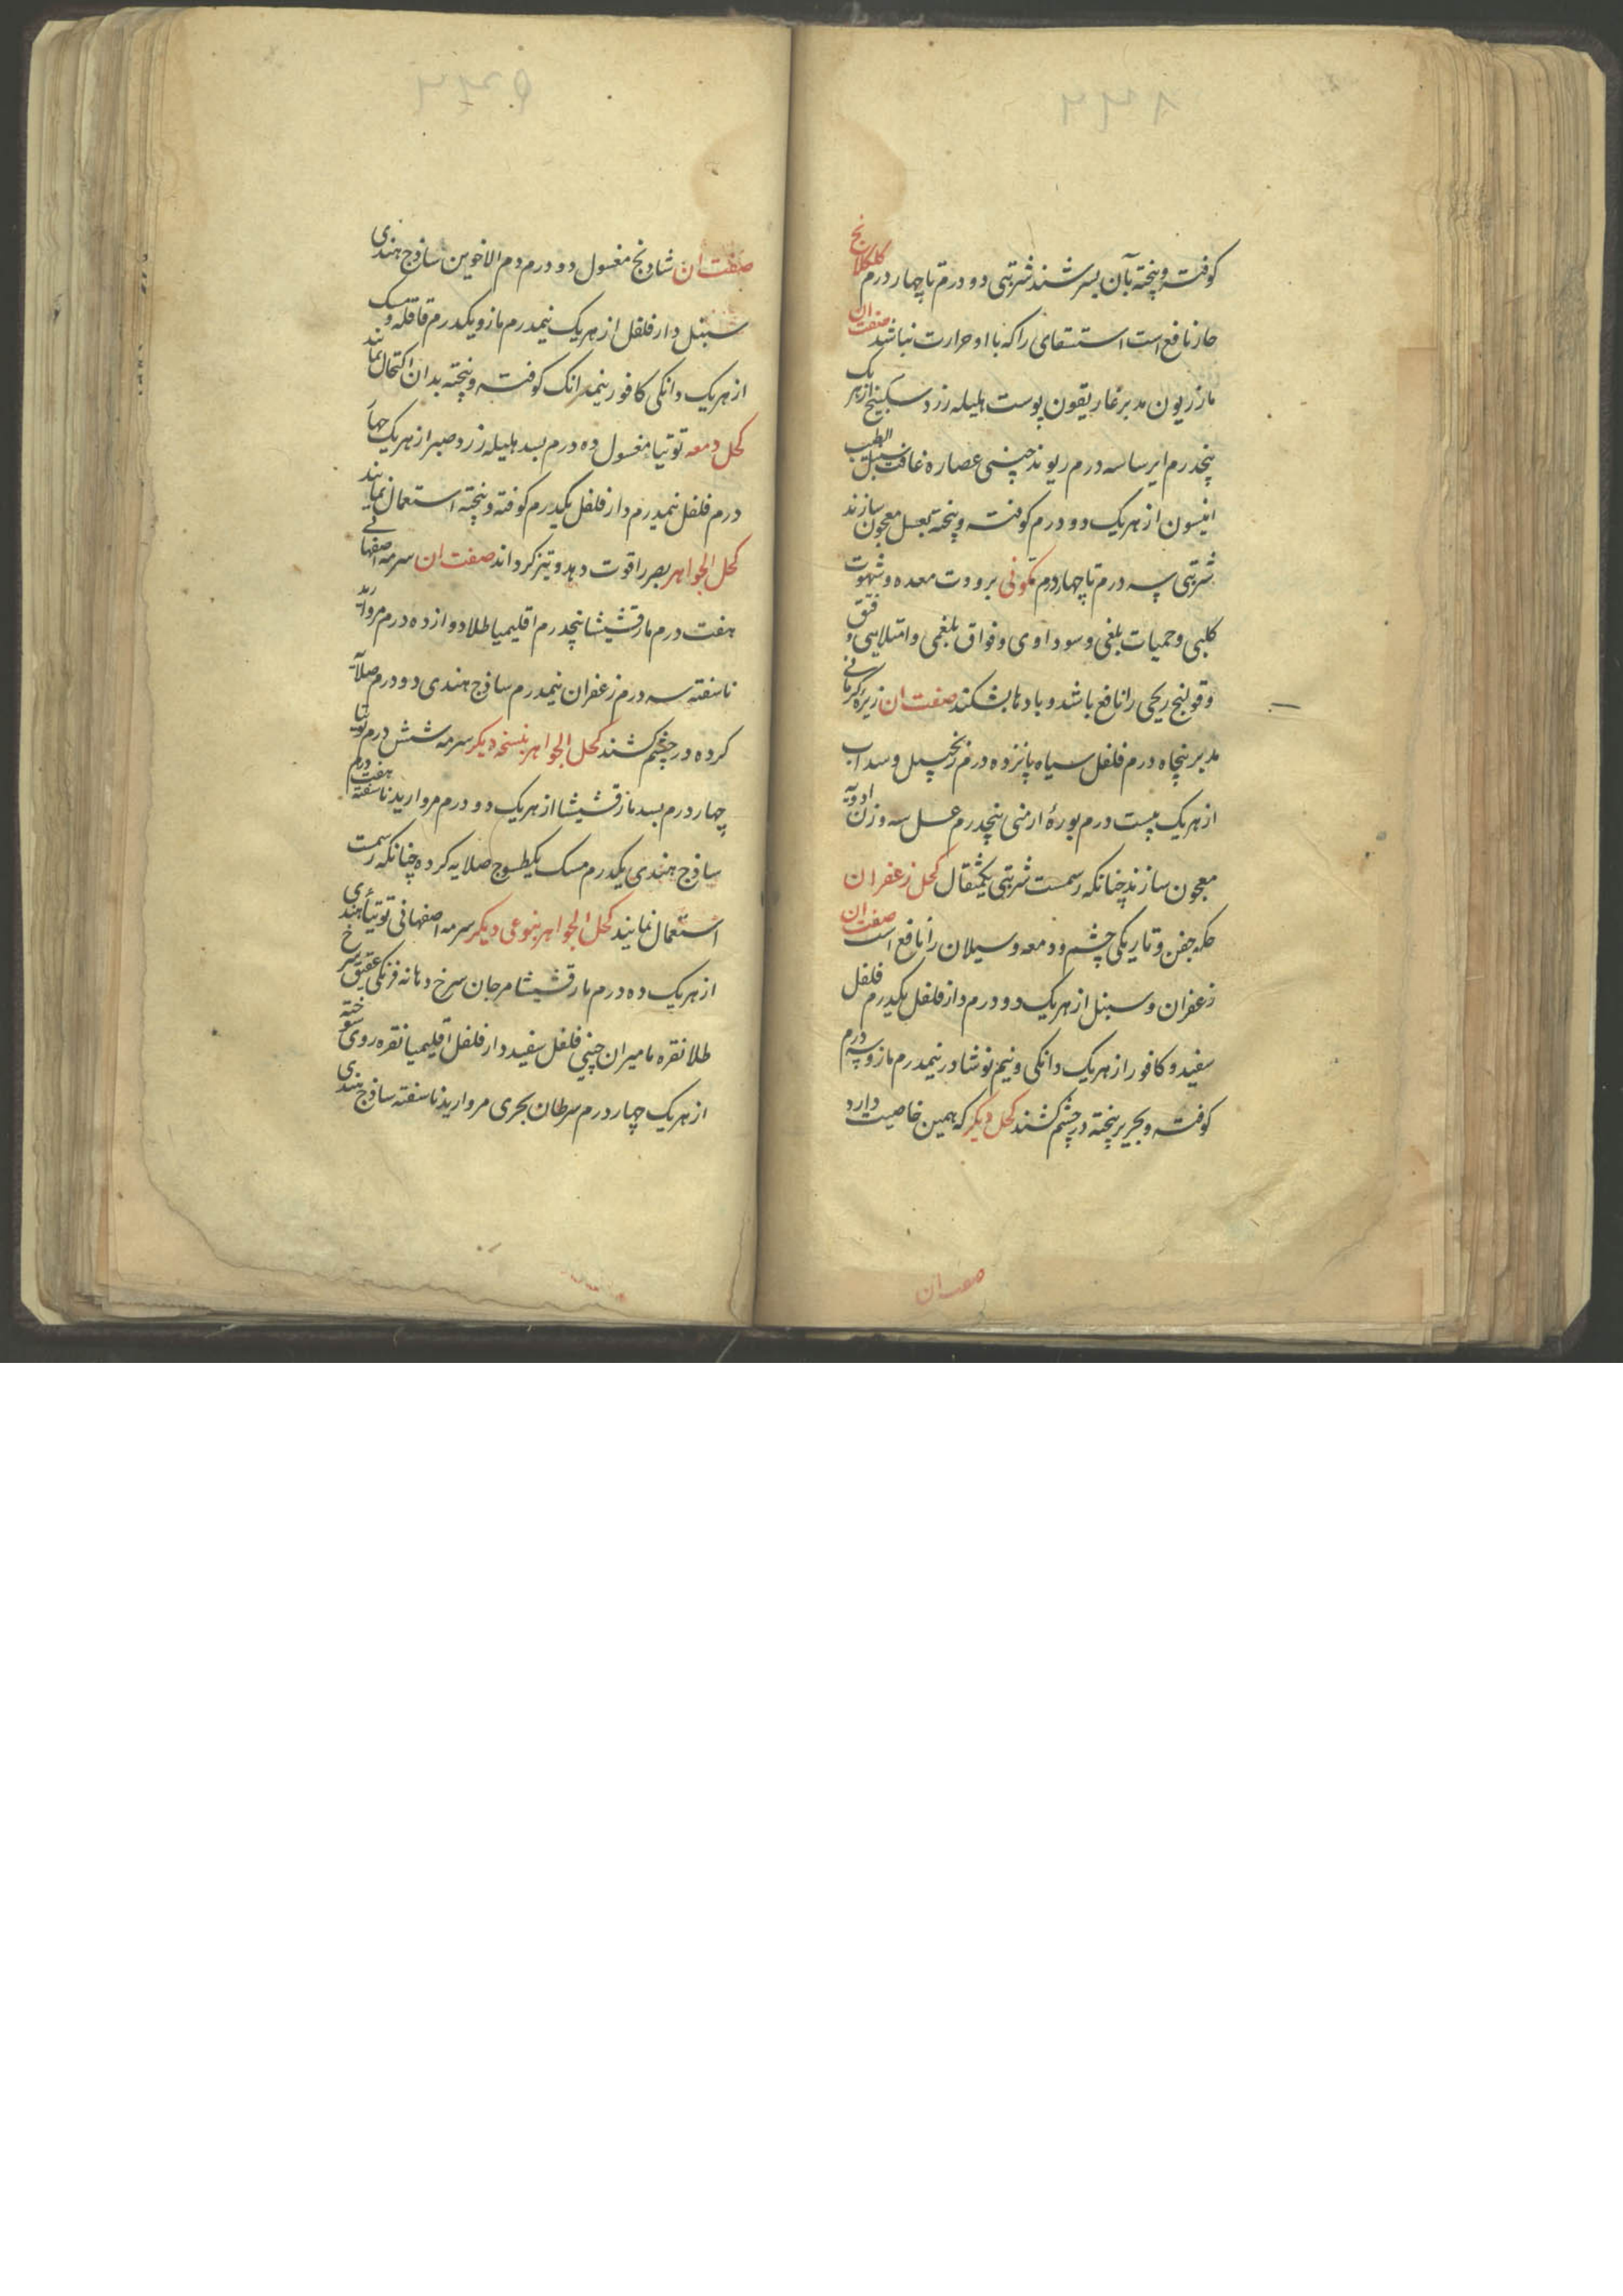 کوفته و پخته بآن بسرشند شربتی دو درم تا چهار درم کلکلانج
حار نافع است استسقای را که با او حرارت نباشد صفت ان
مازریون مدبر غاریقون پوست هلیله زرد سکبینج از هر یک
پنجدرم ایرسا سه درم ریوند چینی عصاره غافث سنبل الطیب
انیسون از هر یک دو درم کوفته و پخته بعسل معجون سازند
شربتی سه درم تا چهار درم کمونی برودت معده و شهوت
کلبی و حمیات بلغمی و سوداوی و فواق بلغمی و امتلایی و فتق
و قولنج ریحی را نافع باشد و بادها بشکند صفت ان زیره کرمانی
مدبر پنجاه درم فلفل سیاه پانزده درم زنجبیل و سداب
از هر یک بیست درم بورهٔ ارمنی پنجدرم عسل سه وزن ادویه
معجون سازند چنانکه رسمست شربتی یکمثقال کحل زعفران
حکه جفن و تاریکی چشم و دمعه و سیلان را نافع است صفت ان
زعفران و سنبل از هر یک دو درم دارفلفل یکدرم فلفل
سفید و کافور از هر یک دانکی و نیم نوشادر نیمدرم مازو سه درم
کوفته و بحریر پخته در چشم کشند کحل دیکر که همین خاصیت دارد
صفت ان
صفت ان شادنج مغسول دو درم دم الاخوین ساذج هندی
سنبل دارفلفل از هر یک نیمدرم مازو یکدرم قاقله و مسک
از هر یک دانکی کافور نیمدانک کوفته و پخته بدان اکتحال نمایند
کحل دمعه توتیا مغسول ده درم بسد هلیله زرد صبر از هر یک چهار
درم فلفل نیمدرم دارفلفل یکدرم کوفته و پخته استعمال نمایند
کحل الجواهر بصر را قوت دهد و تیز کرداند صفت ان سرمه اصفهانی
هفت درم مارقشیشا پنجدرم اقلیمیا طلا دوازده درم مروارید
ناسفته سه درم زعفران نیمدرم ساذج هندی دو درم صلایه
کرده در چشم کشند کحل الجواهر بنسخه دیکر سرمه شش درم توتیا
چهار درم بسد مارقشیشا از هر یک دو درم مروارید ناسفته هفت درم
ساذج هندی یکدرم مسک یکطسوج صلایه کرده چنانکه رسمست
استعمال نمایند کحل الجواهر بنوعی دیکر سرمه اصفهانی توتیاء هندی
از هر یک ده درم مارقشیشا مرجان سرخ دهانه فرنکی عقیق سرخ
طلا نقره مامیران چینی فلفل سفید دارفلفل اقلیمیا نقره روی سوخته
از هر یک چهار درم سرطان بحری مروارید ناسفته ساذج هندی